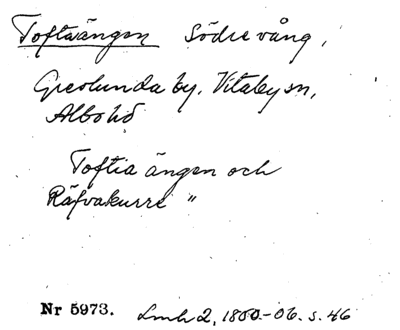 Toftaängen Södre vång,
Grevlunda by. Vitaby sn,
Albo hd
Toftia ängen och
Räfvakurre "
Nr 5973. Lmh 2, 1800-06. s. 46